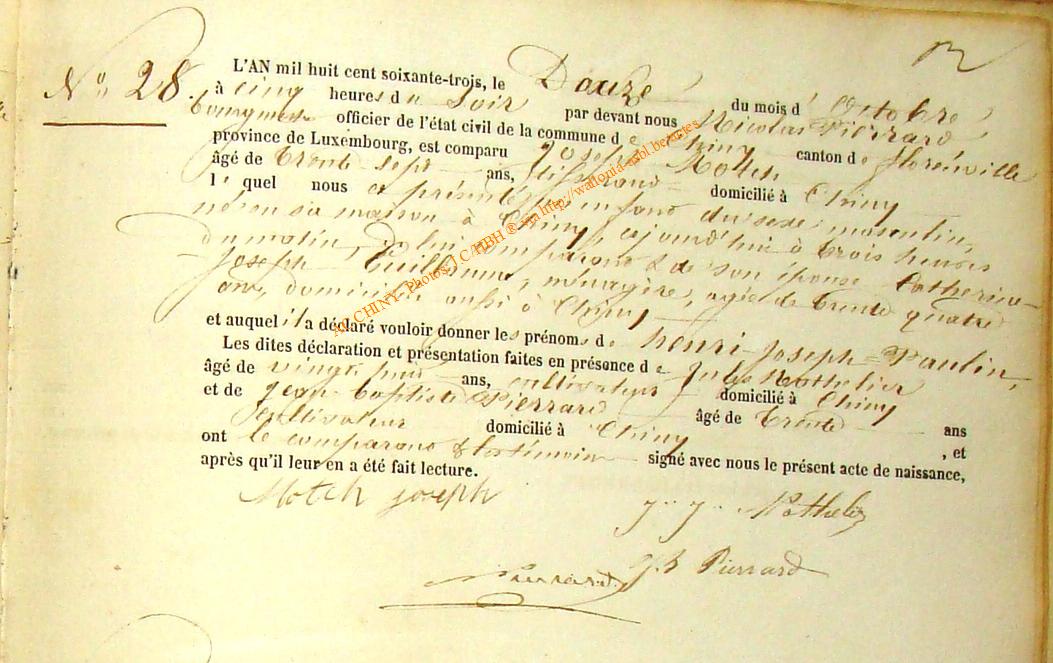 N° 28.
L'AN mil huit cent soixante-trois, le Douze du mois d'octobre
à cinq heures du Soir par devant nous Nicolas Pierrard
Bourgmestre officier de l'état civil de la commune de Chiny canton de florenville
province de Luxembourg, est comparu Joseph
âgé de trente sept ans, tisserand domicilié à Chiny
lequel nous a présenté un enfant du sexe masculin,
né en sa maison à Chiny, cejourd'hui à trois heures
du matin, de lui comparant & de son épouse Catherine
Joseph Guillaume, ménagère, agée de trente quatre
ans, domiciliée aussi à Chiny
et auquel il a déclaré vouloir donner les prénoms de henri-Joseph=Paulin,
Les dites déclaration et présentation faites en présence de Jules Nothelier
âgé de vingt ans, cultivateur domicilié à Chiny
et de Jean Baptiste Pierrard âgé de trente ans
cultivateur domicilié à Chiny, et
ont le comparant & les témoins signé avec nous le présent acte de naissance,
après qu'il leur en a été fait lecture.
Motch joseph
J. J. Nothelier
JB Pierrard
Pierrard
AC CHINY- Photos JC/HBH ® via http://wallonia-asbl.be/actes